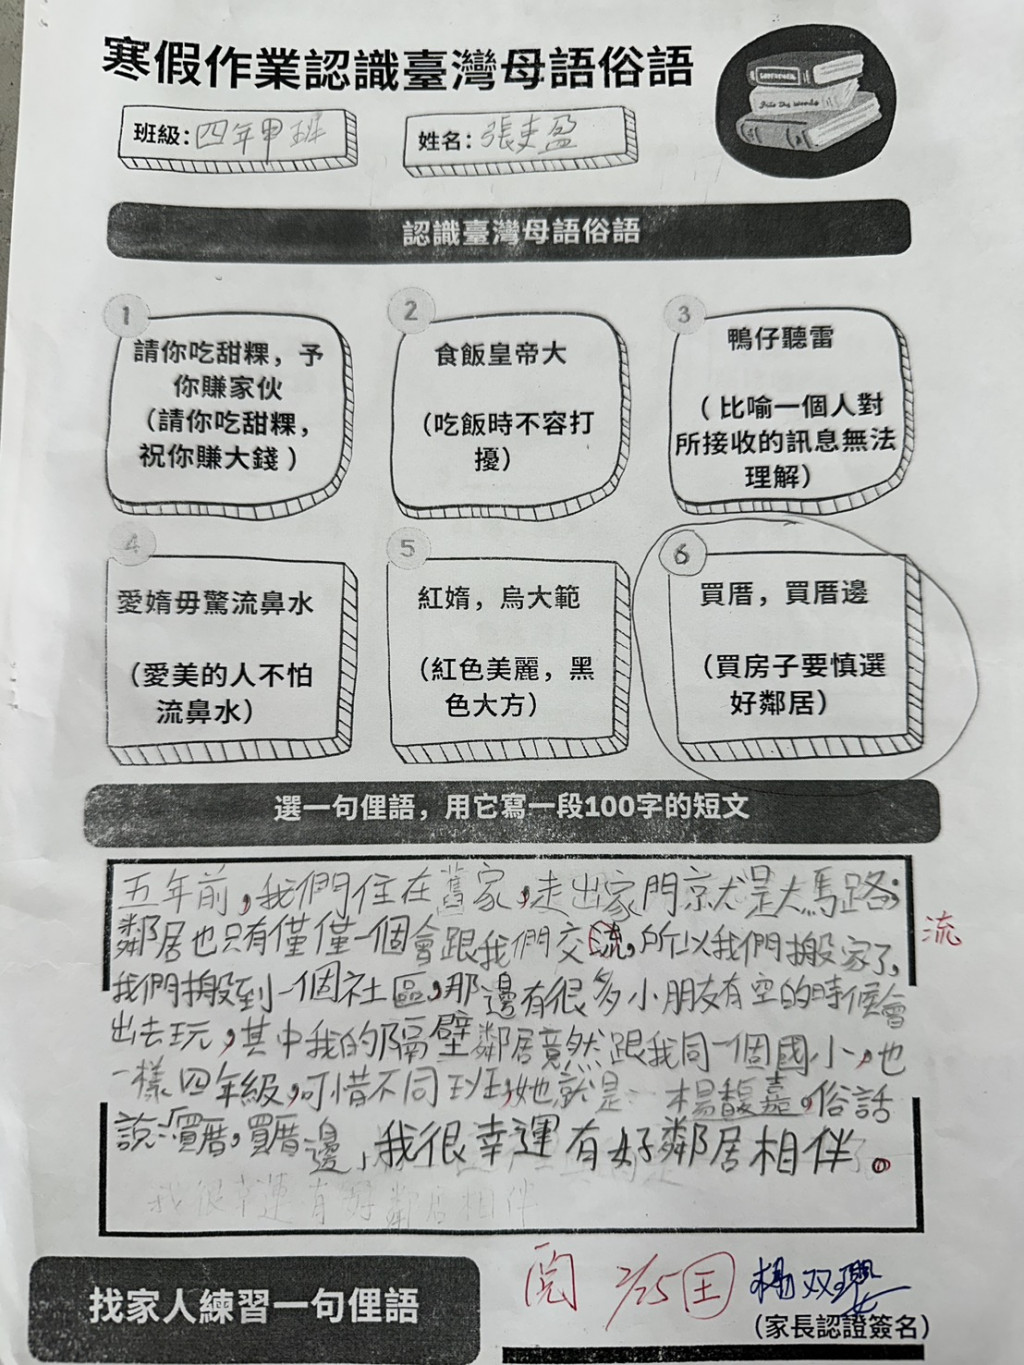 寒假作業認識臺灣母語俗語
班級:四年甲班
姓名:張
認識臺灣母語俗語
1
請你吃甜粿，予
你賺家伙
（請你吃甜粿，
祝你賺大錢）
2
食飯皇帝大
（吃飯時不容打
擾）
3
鴨仔聽雷
（比喻一個人對
所接收的訊息無法
理解）
4
愛媠毋驚流鼻水
（愛美的人不怕
流鼻水）
5
紅媠，烏大範
（紅色美麗，黑
色大方）
6
買厝，買厝邊
（買房子要慎選
好鄰居）
選一句俚語，用它寫一段100字的短文
五年前，我們住在舊家，走出家門就是大馬路；
鄰居也只有僅僅一個會跟我們交流，所以我們搬家了，
流
我們搬到一個社區，那邊有很多小朋友有空的時候會
出去玩，其中我的隔壁鄰居竟然跟我同一個國小，也
一樣四年級，可惜不同班，她就是：楊馥嘉。俗話
說：買厝，買厝邊，我很幸運有好鄰居相伴。
我很幸運有好鄰居相伴
閱 2/15
楊双
找家人練習一句俚語
（家長認證簽名）